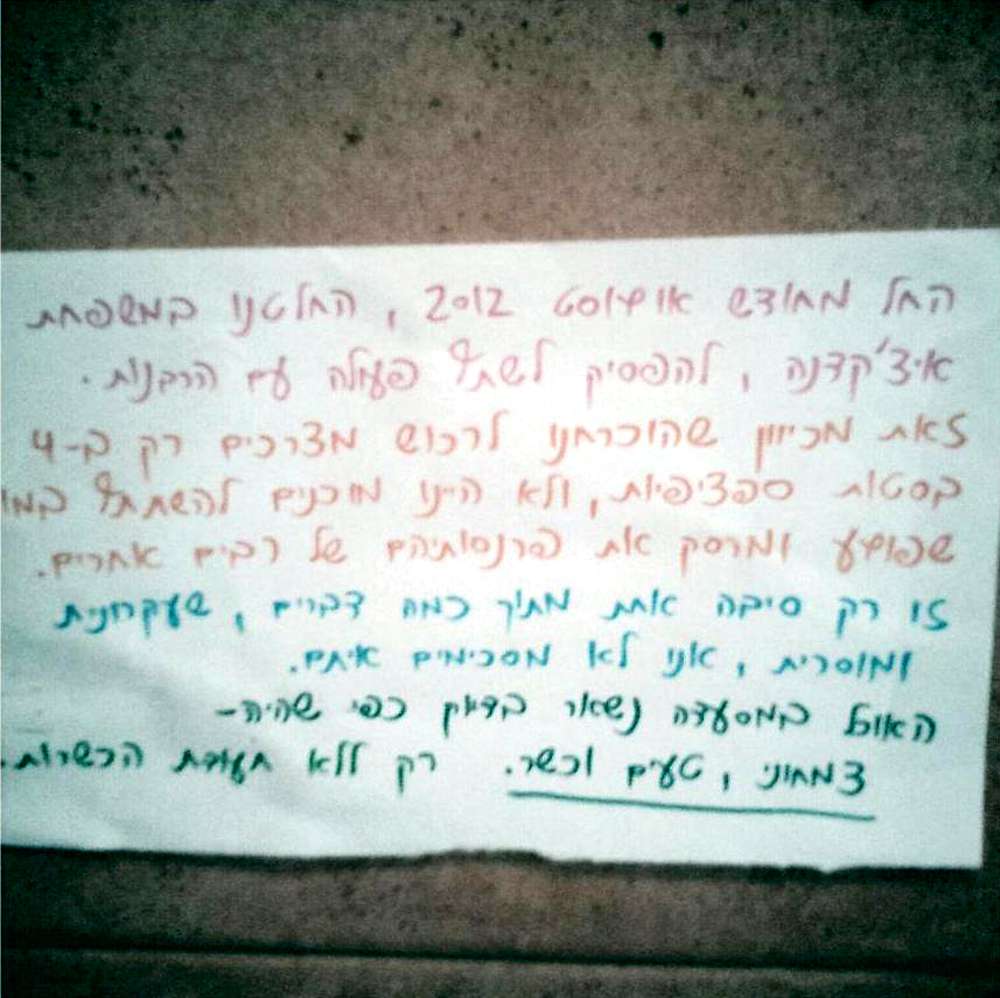 החל מחודש אוגוסט 2012, החלטנו במשפחת
איצ'קדנה, להפסיק לשתף פעולה עם הרבנות.
זאת מכיוון שהוכרחנו לרכוש מצרכים רק ב-4
בסטות ספציפיות, ולא היינו מוכנים להשתתף במו
שפוגע ומרסק את פרנסותיהם של רבים אחרים.
זו רק סיבה אחת מתוך כמה דברים, שעקרונית
ומוסרית, אנו לא מסכימים איתם.
האוכל במסעדה נשאר בדיוק כפי שהיה-
צמחוני, טעים וכשר. רק ללא תעודת הכשרות.